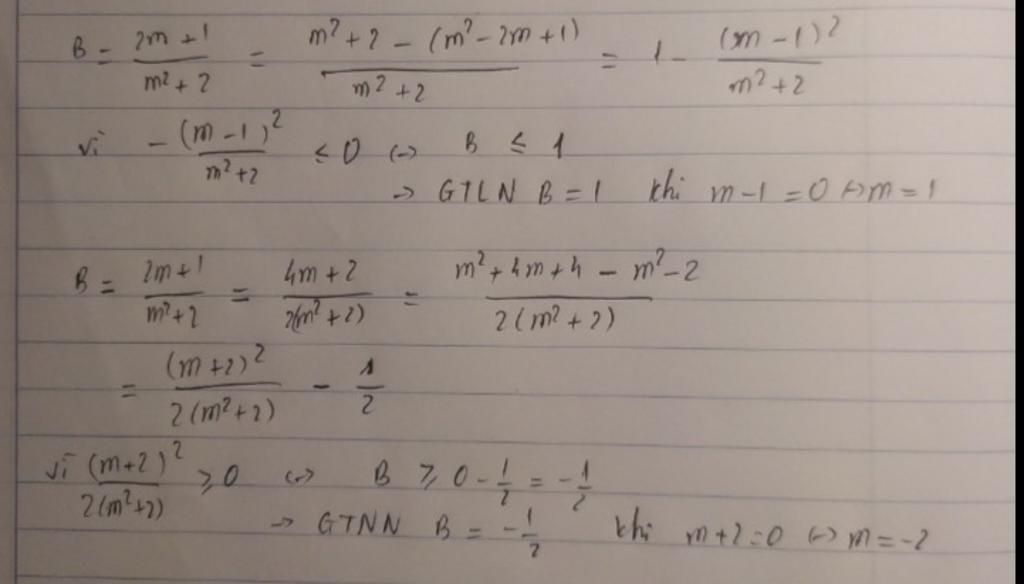 B = \frac{2m+1}{m^2+2} = \frac{m^2+2-(m^2-2m+1)}{m^2+2} = 1 - \frac{(m-1)^2}{m^2+2}
vì -\frac{(m-1)^2}{m^2+2} ≤ 0 ↔ B ≤ 1
→ GTLN B = 1 khi m-1 = 0 ↔ m = 1
B = \frac{2m+1}{m^2+2} = \frac{4m+2}{2(m^2+2)} = \frac{m^2+4m+4-m^2-2}{2(m^2+2)}
= \frac{(m+2)^2}{2(m^2+2)} - \frac{1}{2}
vì \frac{(m+2)^2}{2(m^2+2)} ≥ 0 ↔ B ≥ 0 - \frac{1}{2} = -\frac{1}{2}
→ GTNN B = -\frac{1}{2} khi m+2=0 ↔ m = -2